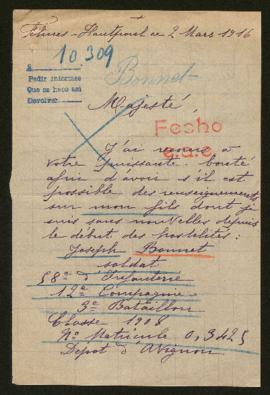 Hautpoul ce 2 Mars 1916
10.309
A
Pedir informes
Que se hace así
Devolver
Bonnet
Majesté,
Fecho
J'ai recours a
votre puissante bonté
afin d'avoir s'il est
possible des renseignements
sur mon fils dont je
suis sans nouvelles depuis
le début des hostilités.
Joseph Bonnet
soldat
58e d'Infanterie
12e Compagnie
3e Bataillon
Classe 1908
No Matricule 0,3425
Depot d'Avignon